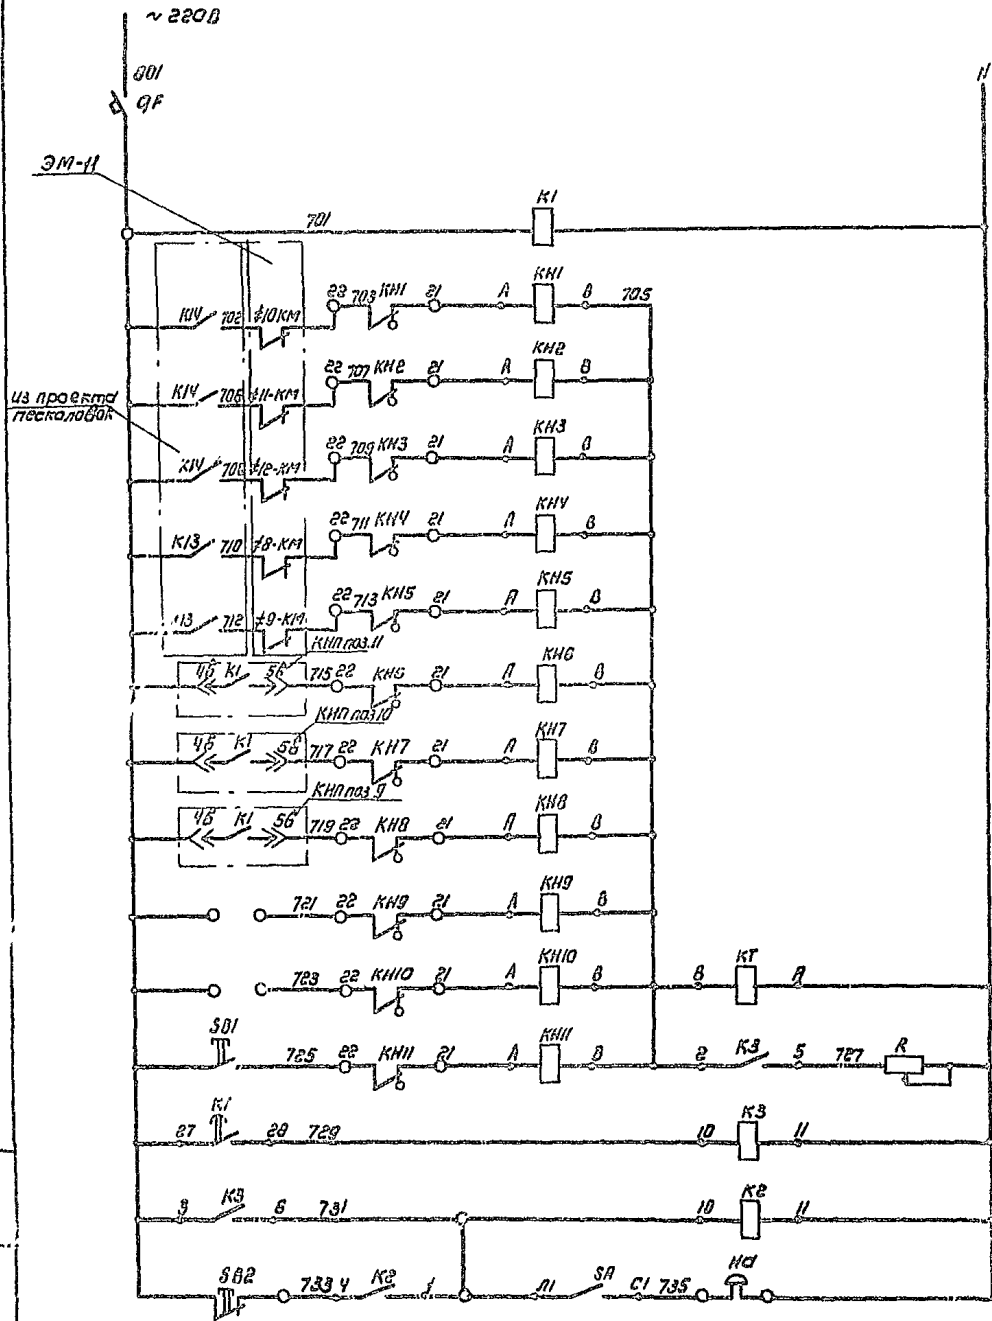 ~ 220В
801
QF
N
ЭМ-11
701 К1
К14 702 10КМ 22 703 КН1 21 А КН1 В 705
К14 706 11-КМ 22 707 КН2 21 А КН2 В
из проекта
песколовок
К14 12-КМ 22 709 КН3 21 А КН3 В
К13 710 18-КМ 22 711 КН4 21 А КН4 В
712 19-КМ 22 713 КН5 21 А КН5 В
КИП поз.11
4б К1 5б 715 22 КН6 21 А КН6 В
КИП поз.10
4б К1 5б 717 22 КН7 21 А КН7 В
КИП поз.9
4б К1 5б 719 22 КН8 21 А КН8 В
721 22 КН9 21 А КН9 В
723 22 КН10 21 А КН10 В В КТ А
SB1 725 22 КН11 21 А КН11 В 2 К3 5 727 R
27 К1 28 729 10 К3 11
3 К3 6 731 10 К2 11
SB2 733 4 К2 3 Л1 SA С1 735 НА